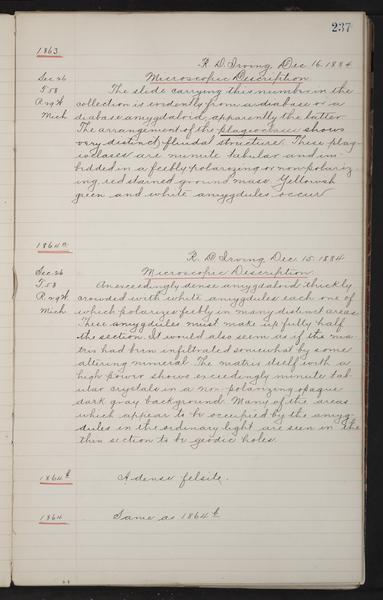 237
1863
R. D. Irving, Dec 16, 1884
Sec 26 Microscopic Description
The slide carrying this number in the
T 58 collection is evidently from a diabase or a
R 29 W diabase amygdaloid, apparently the latter.
Mich The arrangement of the plagioclases shows
very distinct fluidal structure. These plag-
ioclases are minute tabular and im-
bedded in a feebly polarizing or non polariz-
ing, red stained ground mass. Yellowish
green and white amygdules occur
1864a
R. D. Irving, Dec 15, 1884
Sec. 26 Microscopic Description.
T. 58 An exceedingly dense amygdaloid thickly
R 29 W crowded with white amygdules each one of
Mich which polarizes feebly in many distinct areas.
These amygdules must make up fully half
the section. It would also seem as if the ma-
trix had been infiltrated somewhat by some
altering mineral. The matrix itself with a
high power shows exceedingly minute tab-
ular crystals in a non-polarizing opaque
dark gray background. Many of the areas
which appear to be occupied by the amyg-
dules in the ordinary light are seen in the
thin section to be geodic holes.
1864b A dense felsite.
1864 Same as 1864b